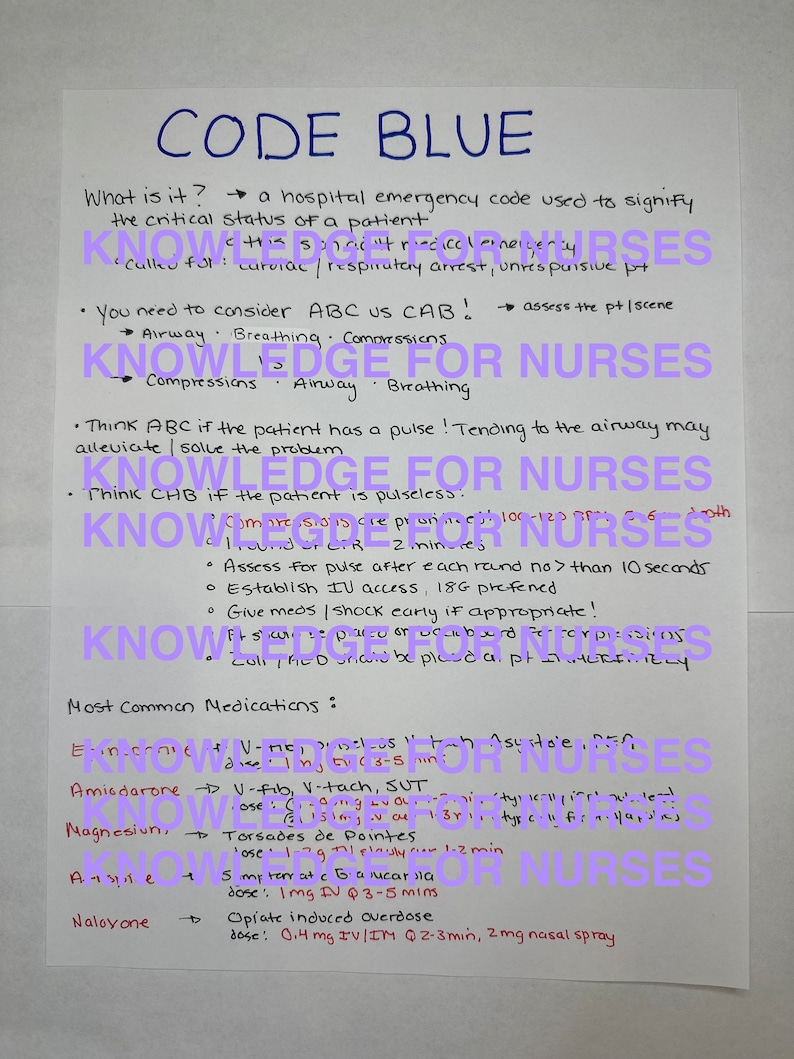 CODE BLUE
What is it? → a hospital emergency code used to signify
the critical status of a patient
KNOWLEDGE FOR NURSES
this is an adult medical emergency
• called for: cardiac / respiratory arrest, unresponsive pt
• You need to consider ABC vs CAB! → assess the pt / scene
→ Airway · Breathing · Compressions
KNOWLEDGE FOR NURSES
vs
→ Compressions · Airway · Breathing
• Think ABC if the patient has a pulse! Tending to the airway may
alleviate / solve the problem
KNOWLEDGE FOR NURSES
• Think CAB if the patient is pulseless:
° Compressions are 100-120 depth
KNOWLEGDE FOR NURSES
° 1 round of CPR = 2 minutes
° Assess for pulse after each round no > than 10 seconds
° Establish IV access, 18G preferred
° Give meds / shock early if appropriate!
° Pt should be placed on backboard for compressions
KNOWLEDGE FOR NURSES
° Zoll / AED should be placed on pt IMMEDIATELY
Most Common Medications:
Epinephrine → V-fib, pulseless V-tach, Asystole, PEA
KNOWLEDGE FOR NURSES
dose: 1mg IV Q 3-5 mins
Amiodarone → V-fib, V-tach, SVT
dose: ① IV (typically if pulseless)
KNOWLEDGE FOR NURSES
② IV (typically for
Magnesium → Torsades de Pointes
dose: 1-2g IV slowly over 1-2 min
KNOWLEDGE FOR NURSES
Atropine → Symptomatic Bradycardia
dose: 1mg IV Q 3-5 mins
Naloxone → Opiate induced overdose
dose: 0.4mg IV/IM Q 2-3min, 2mg nasal spray